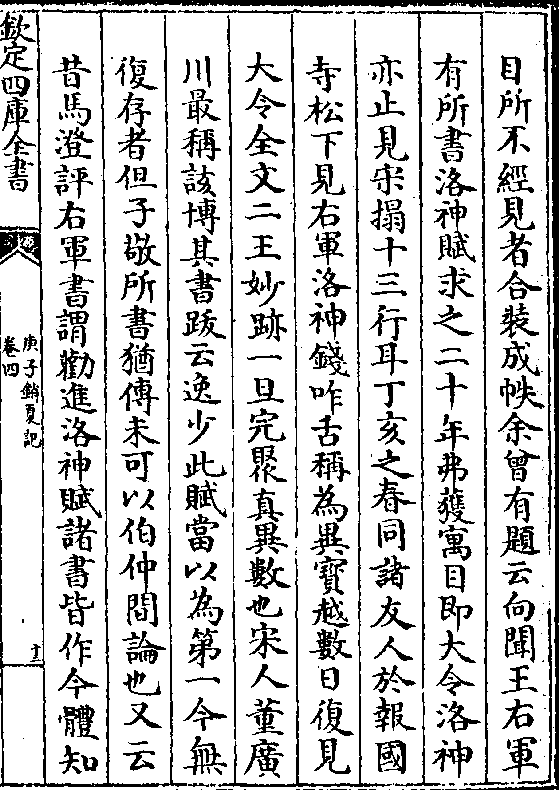 目所不經見者合裝成帙余曾有題云向聞王右軍
有所書洛神賦求之二十年弗獲寓目即大令洛神
亦止見宋搨十三行耳丁亥之春同諸友人於報國
寺松下見右軍洛神錢咋舌稱為異寶越數日復見
大令全文二王妙跡一旦完聚真異數也宋人董廣
川最稱該博其書跋云逸少此賦當以為第一今無
復存者但子敬所書猶傳未可以伯仲間論也又云
昔馬澄評右軍書謂勸進洛神賦諸書皆作今體知
欽定四庫全書
庚子銷夏記
卷四
十三